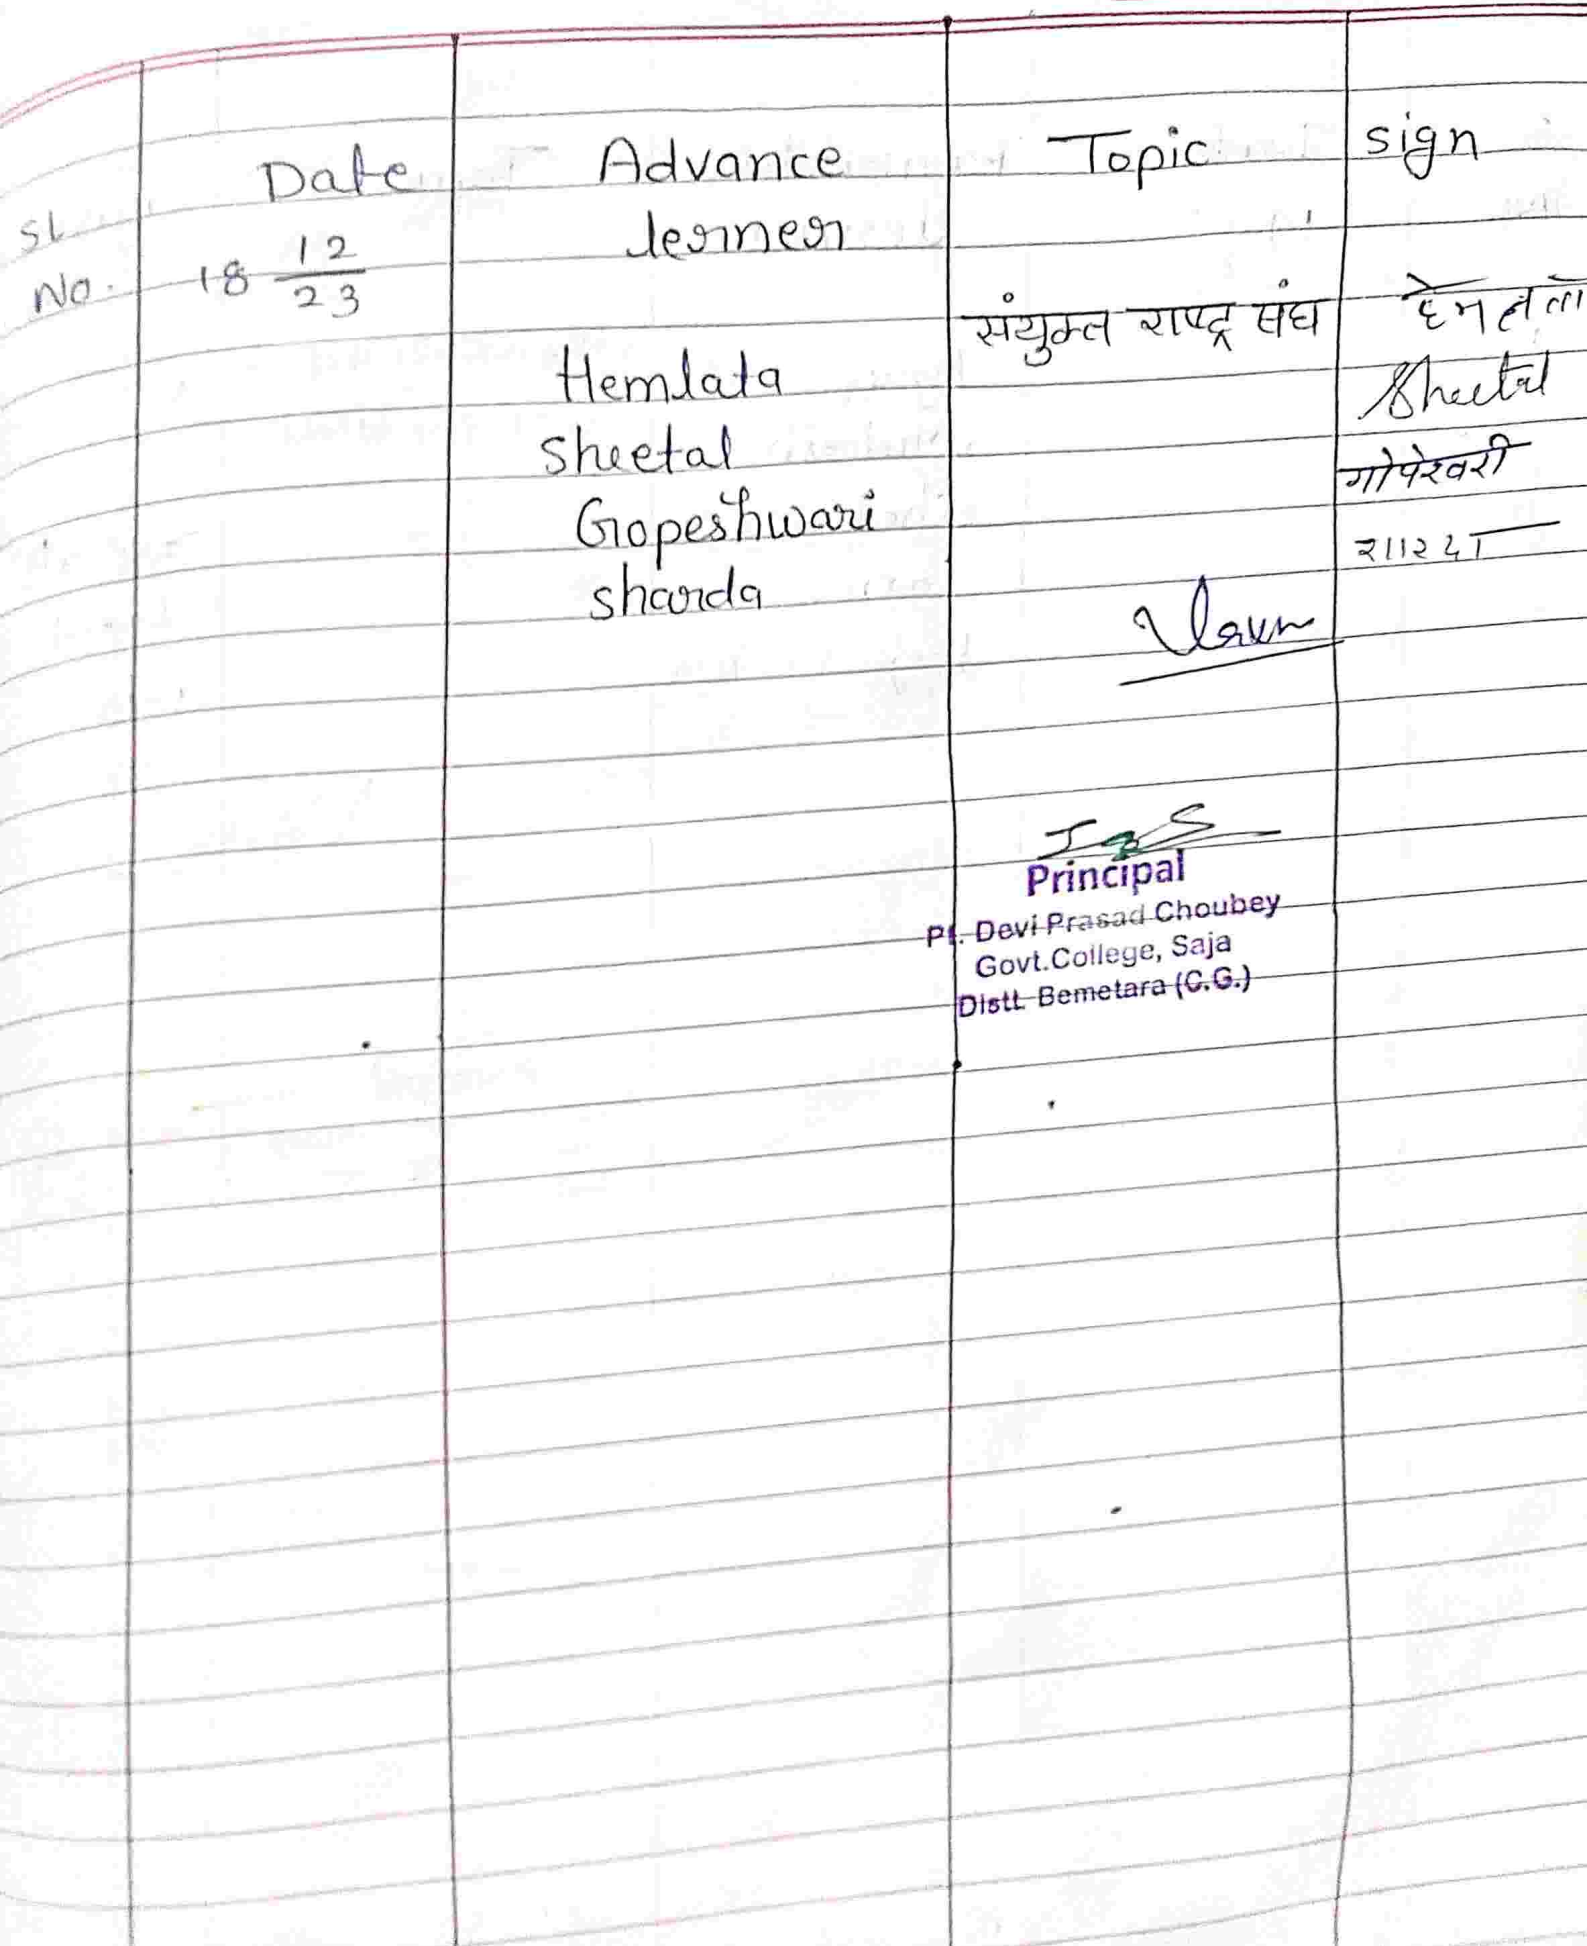 Sl. No. Date Advance lerner Topic sign
18 12/23
संयुक्त राष्ट्र संघ
Hemlata हेमलता
Sheetal Sheetal
Gopeshwari गोपेश्वरी
sharda शारदा
Principal
Pt. Devi Prasad Choubey
Govt.College, Saja
Distt. Bemetara (C.G.)